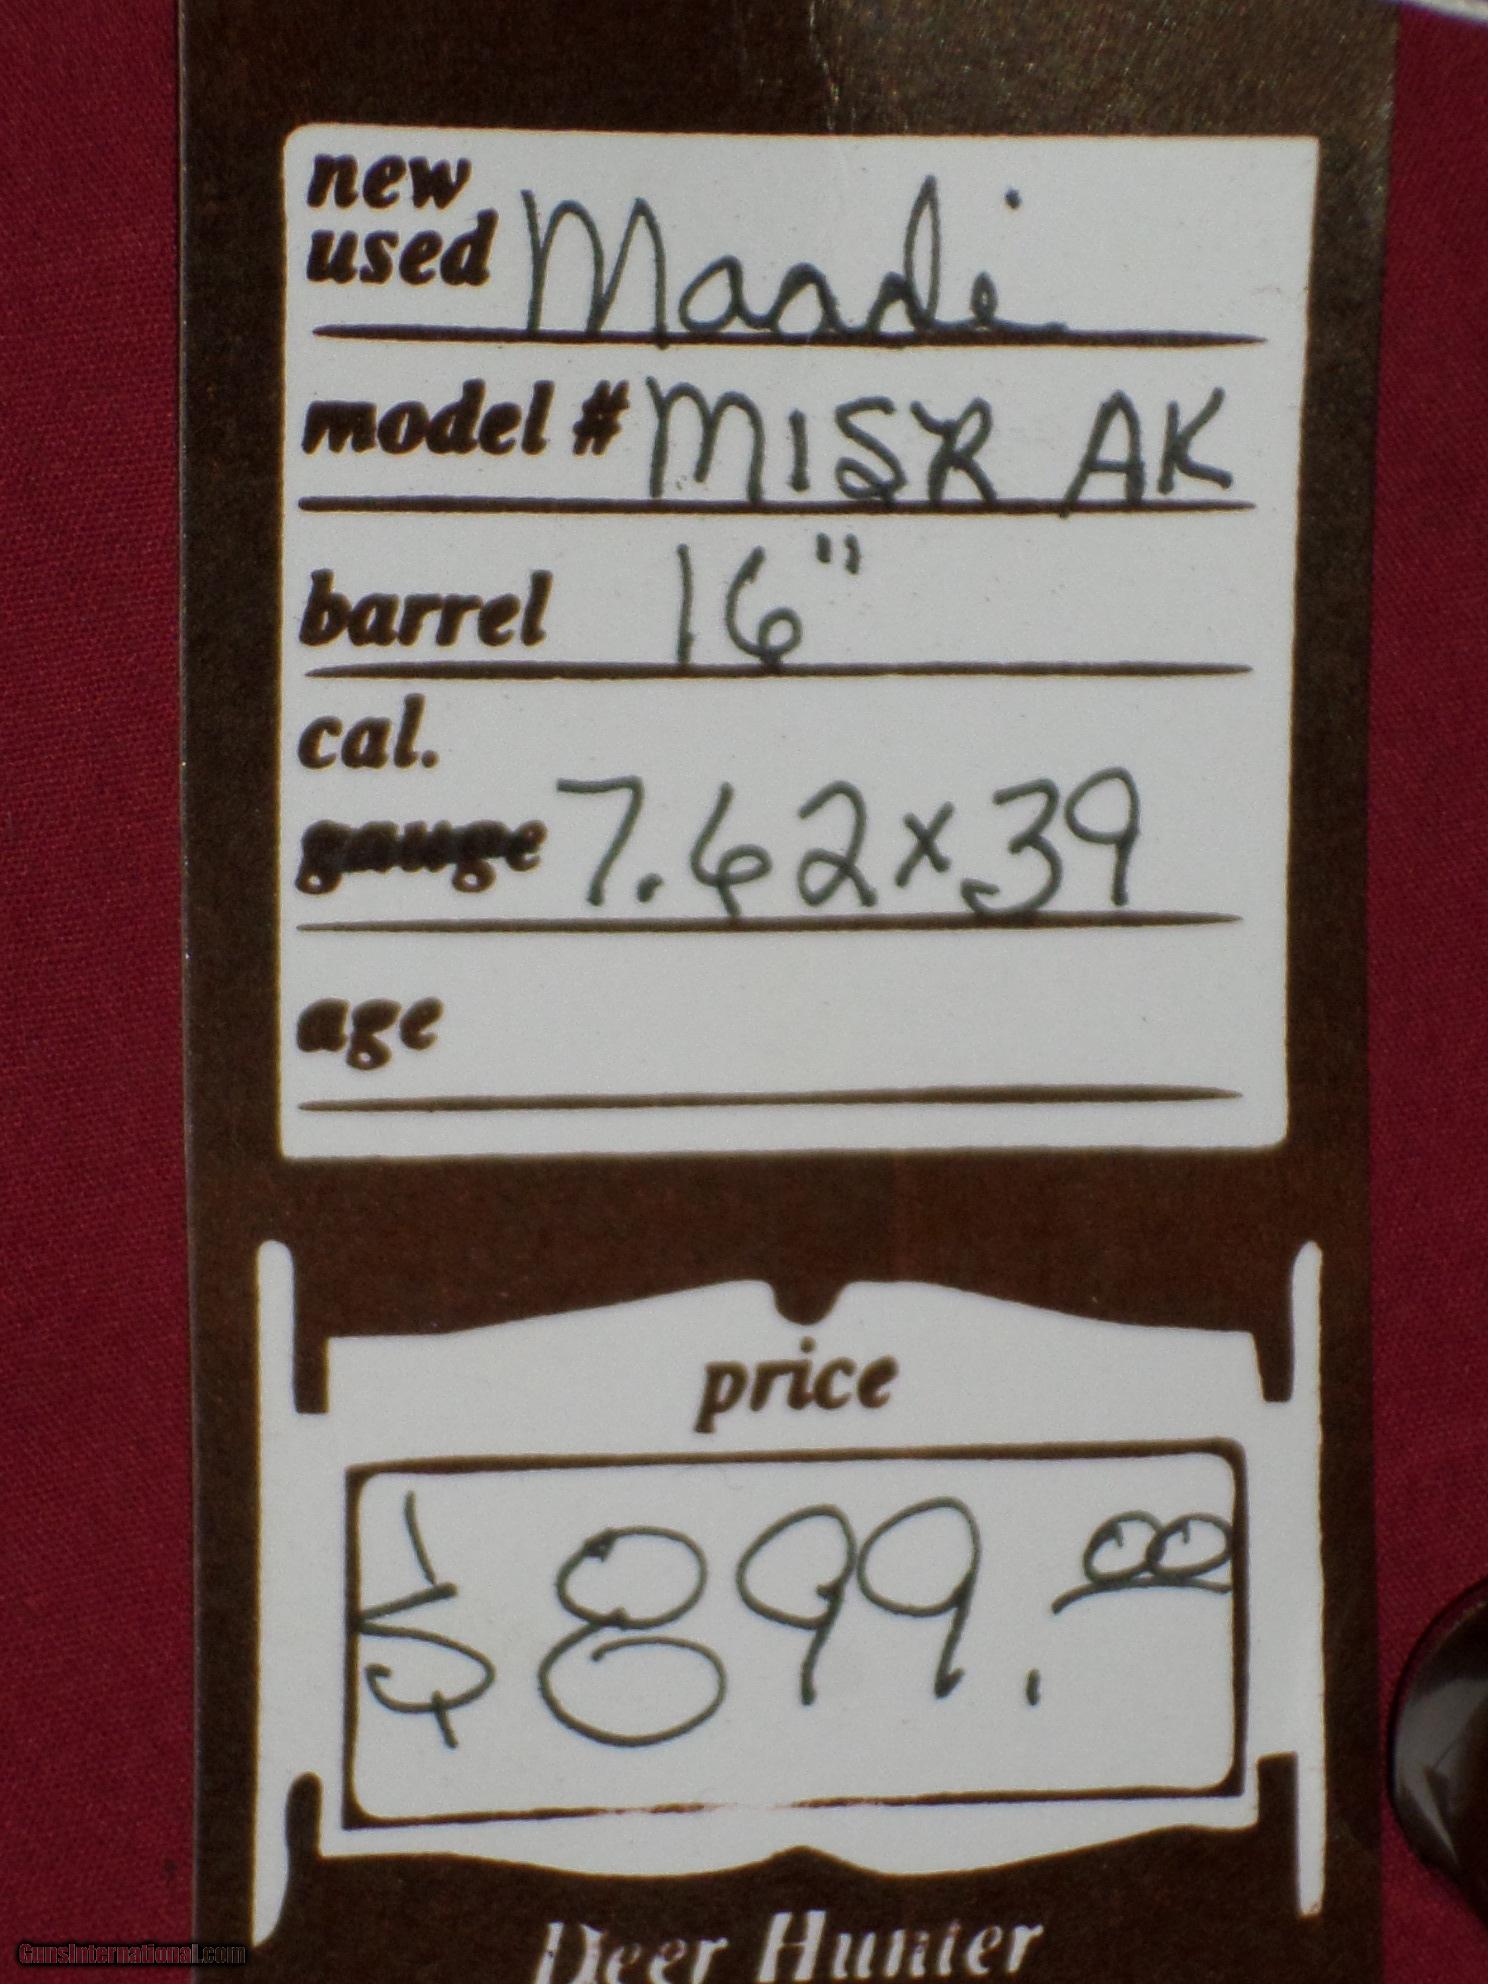 new
used Maadi
model # MISR AK
barrel 16"
cal.
gauge 7.62x39
age
price
$899.00
Deer Hunter
GunsInternational.com